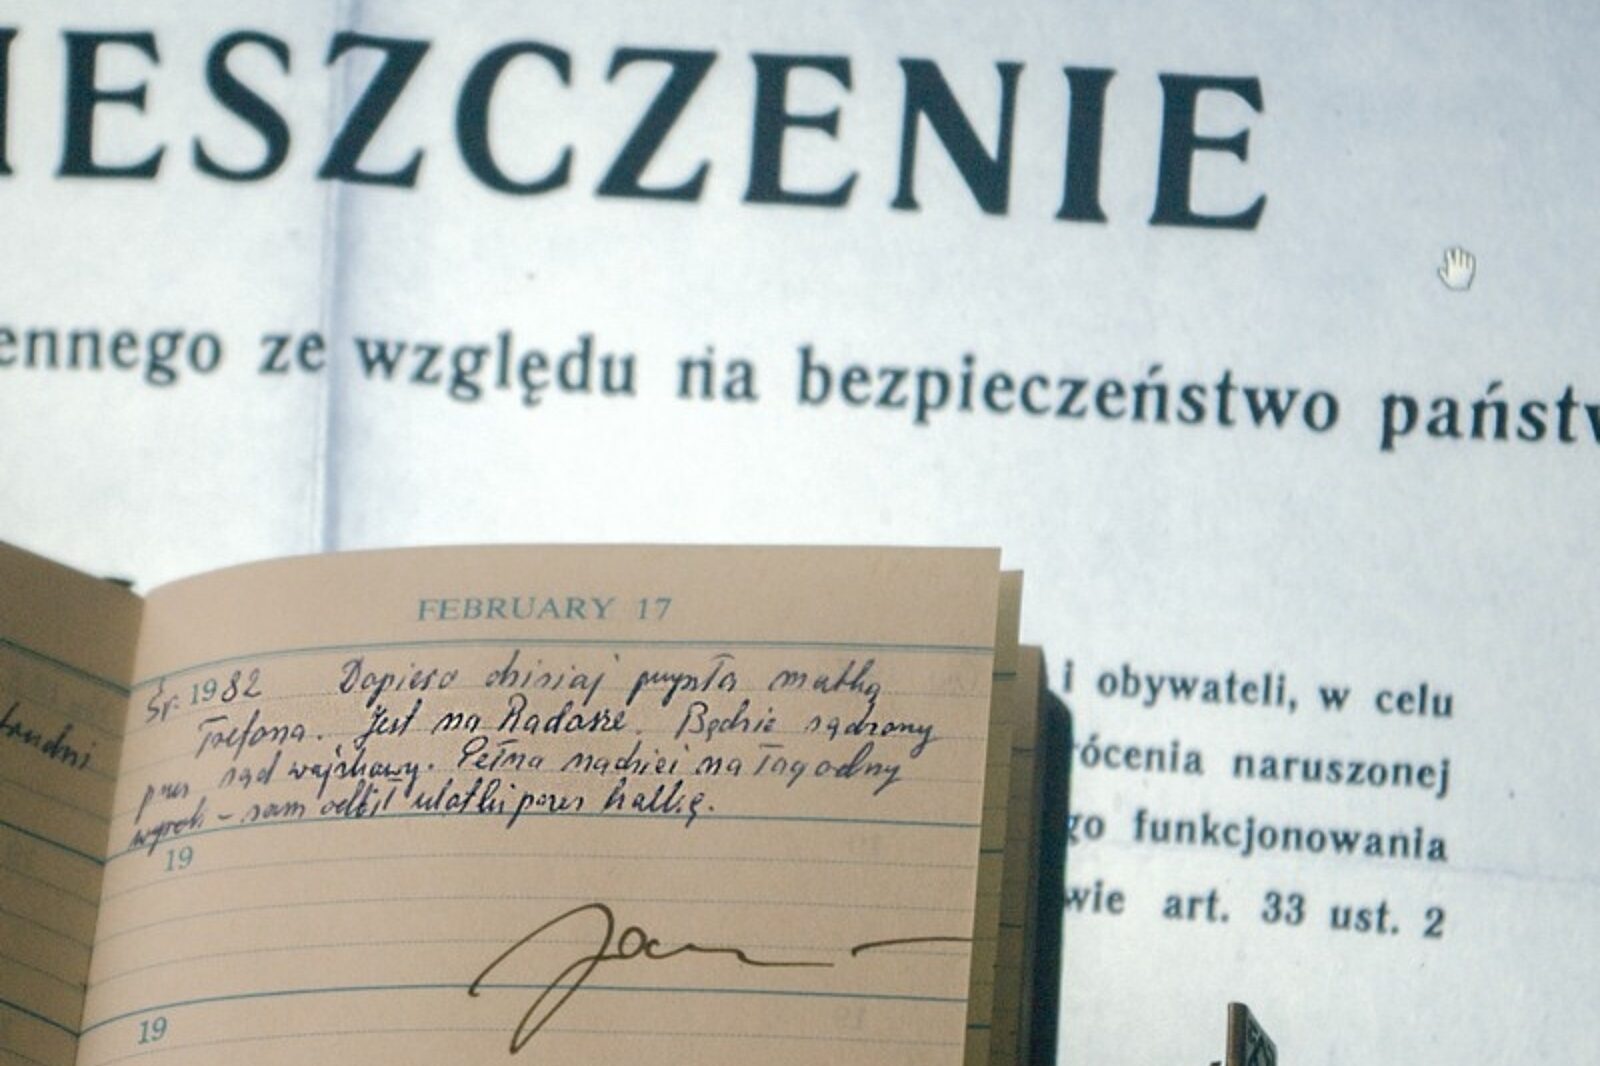 IESZCZENIE
ennego ze względu na bezpieczeństwo państw
i obywateli, w celu
rócenia naruszonej
go funkcjonowania
wie art. 33 ust. 2
FEBRUARY 17
Śr. 1982 Dopiero dzisiaj przyszła matka
Jest na Radosze. Będzie sądzony
przez sąd wojskowy. Pełna nadziei na łagodny
wyrok - sam odbił ulotki przez kalkę.
19
Jan
19